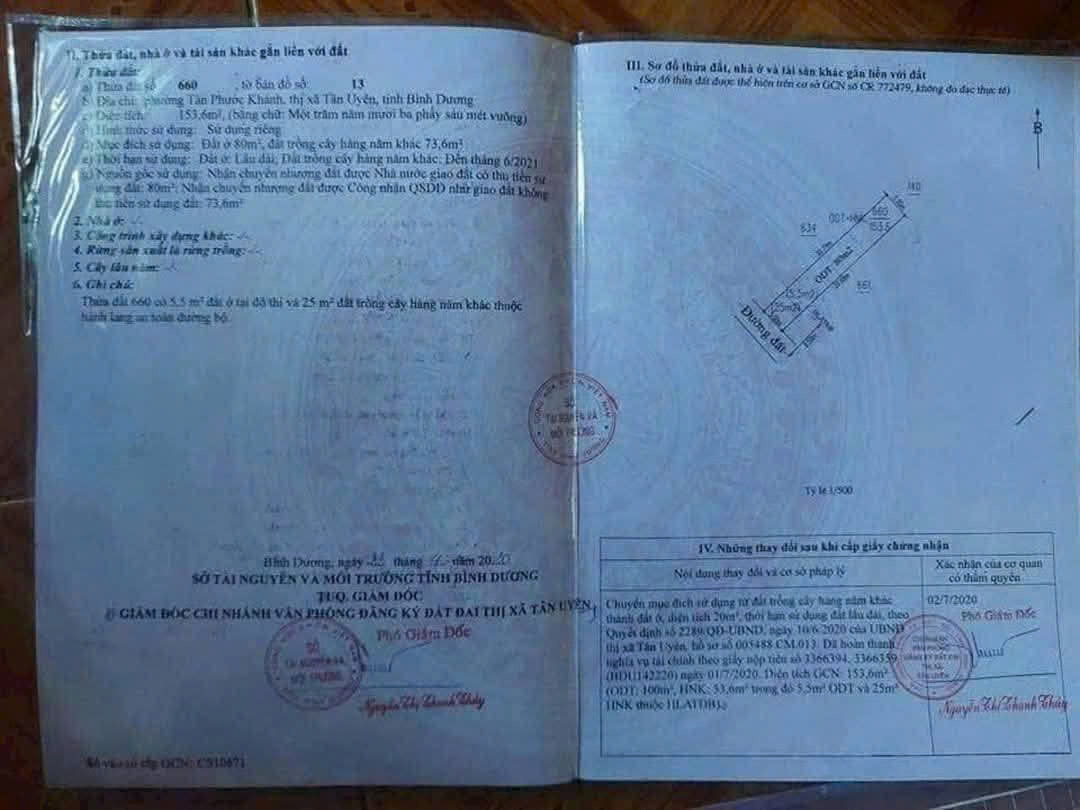 II. Thửa đất, nhà ở và tài sản khác gắn liền với đất
1. Thửa đất:
a) Thửa đất số 660 , tờ bản đồ số 13
b) Địa chỉ: phường Tân Phước Khánh, thị xã Tân Uyên, tỉnh Bình Dương
c) Diện tích: 153,6m², (bằng chữ: Một trăm năm mươi ba phẩy sáu mét vuông)
d) Hình thức sử dụng: Sử dụng riêng
đ) Mục đích sử dụng: Đất ở 80m², đất trồng cây hàng năm khác 73,6m²
e) Thời hạn sử dụng: Đất ở: Lâu dài; Đất trồng cây hàng năm khác: Đến tháng 6/2021
g) Nguồn gốc sử dụng: Nhận chuyển nhượng đất được Nhà nước giao đất có thu tiền sử
dụng đất: 80m²; Nhận chuyển nhượng đất được Công nhận QSDĐ như giao đất không
thu tiền sử dụng đất: 73,6m²
2. Nhà ở: -/-
3. Công trình xây dựng khác: -/-
4. Rừng sản xuất là rừng trồng: -/-
5. Cây lâu năm: -/-
6. Ghi chú:
Thửa đất 660 có 5,5 m² đất ở tại đô thị và 25 m² đất trồng cây hàng năm khác thuộc
hành lang an toàn đường bộ.
Bình Dương, ngày tháng năm 2020
SỞ TÀI NGUYÊN VÀ MÔI TRƯỜNG TỈNH BÌNH DƯƠNG
TUQ. GIÁM ĐỐC
GIÁM ĐỐC CHI NHÁNH VĂN PHÒNG ĐĂNG KÝ ĐẤT ĐAI THỊ XÃ TÂN UYÊN
Phó Giám Đốc
SỞ
TÀI NGUYÊN VÀ
MÔI TRƯỜNG
Nguyễn Thị Thanh Thúy
Số vào sổ cấp GCN: CS10671
CỘNG HÒA XÃ HỘI CHỦ NGHĨA VIỆT NAM
SỞ
TÀI NGUYÊN VÀ
MÔI TRƯỜNG
III. Sơ đồ thửa đất, nhà ở và tài sản khác gắn liền với đất
(Sơ đồ thửa đất được thể hiện trên cơ sở GCN số CR 772479, không đo đạc thực tế)
B
634
660
153.6
661
ODT: 80m2
Đường đất
Tỷ lệ 1/500
IV. Những thay đổi sau khi cấp giấy chứng nhận
Nội dung thay đổi và cơ sở pháp lý
Xác nhận của cơ quan
có thẩm quyền
Chuyển mục đích sử dụng từ đất trồng cây hàng năm khác
thành đất ở, diện tích 20m², thời hạn sử dụng đất lâu dài, theo
Quyết định số 2289/QĐ-UBND, ngày 10/6/2020 của UBND
thị xã Tân Uyên, hồ sơ số 005488.CM.013. Đã hoàn thành
nghĩa vụ tài chính theo giấy nộp tiền số 3366394, 3366359
(HDU142220) ngày 01/7/2020. Diện tích GCN: 153,6m²
(ODT: 100m², HNK: 53,6m² trong đó 5,5m² ODT và 25m²
HNK thuộc HLATĐB)./.
02/7/2020
Phó Giám Đốc
Nguyễn Thị Thanh Thúy